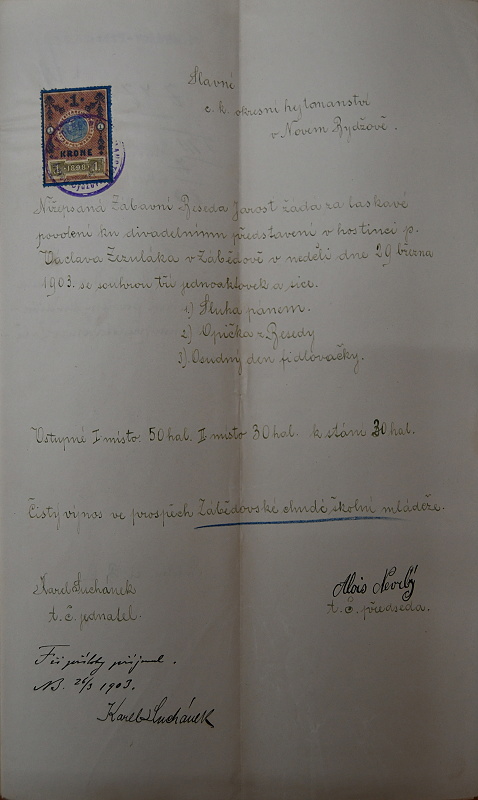 Slavné
c. k. okresní hejtmanství
v Novém Bydžově.
1
KRONE
1 1898 1
Nížepsaná Zábavní Beseda Jarost žádá za laskavé
povolení ku divadelnímu představení v hostinci p.
Václava Žezuláka v Zábědově v neděli dne 29 března
1903. se souhrou tří jednoaktovek a sice.
1.) Sluha pánem.
2.) Opička z Besedy
3.) Osudný den fidlovačky.
Vstupné I místo 50 hal. II místo 30 hal. k stání 30 hal.
Čistý výnos ve prospěch Zábědovské chudé školní mládeže.
Karel Suchánek
t. č. jednatel.
Alois
t. č. předseda.
přílohy přijmul.
NB. 26/3 1903.
Karel Suchánek